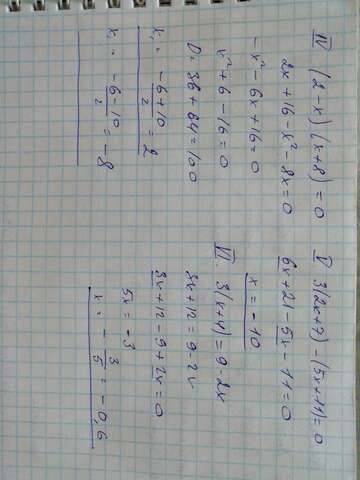 IV (2-x)(x+8)=0
2x+16-x²-8x=0
-x²-6x+16=0
x²+6-16=0
D=36+64=100
x₁ = -6+10/2 = 2
x₁ = -6-10/2 = -8
V 3(2x+7)-(5x+11)=0
6x+21-5x-11=0
x=-10
VI. 3(x+4)=9-2x
3x+12=9-2x
3x+12-9+2x=0
5x=-3
x=-3/5=-0,6